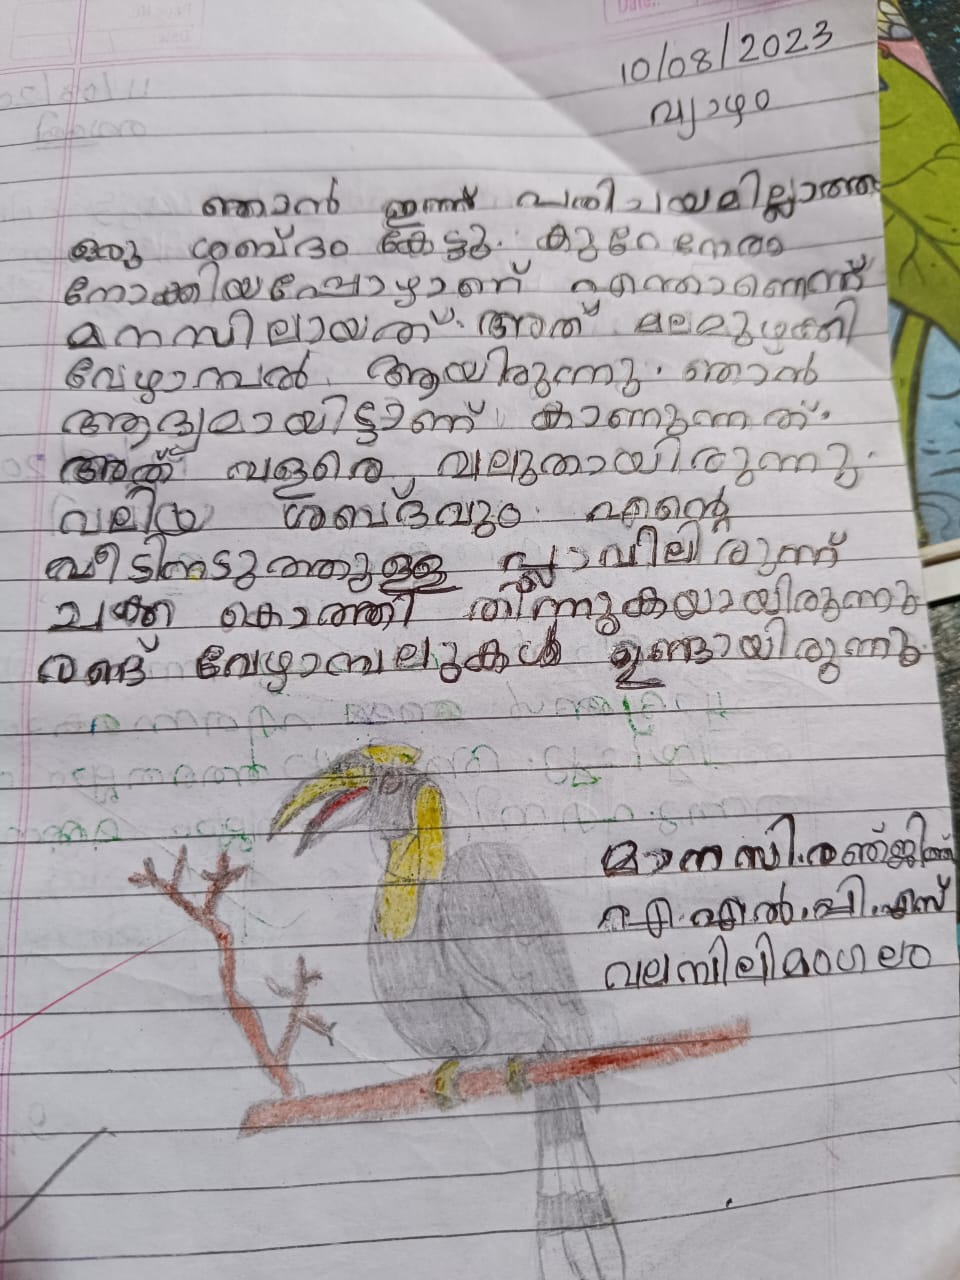 10/08/2023
വ്യാഴം
ഞാൻ ഇന്ന് പരിചയമില്ലാത്ത
ഒരു ശബ്ദം കേട്ടു. കുറേ നേരം
നോക്കിയപ്പോഴാണ് എന്താണെന്ന്
മനസിലായത്. അത് മലമുഴക്കി
വേഴാമ്പൽ ആയിരുന്നു. ഞാൻ
ആദ്യമായിട്ടാണ് കാണുന്നത്.
അത് വളരെ വലുതായിരുന്നു.
വലിയ ശബ്ദവും. എന്റെ
വീടിനടുത്തുള്ള പ്ലാവിലിരുന്ന്
ചക്ക കൊത്തി തിന്നുകയായിരുന്നു
രണ്ട് വേഴാമ്പലുകൾ ഉണ്ടായിരുന്നു.
മാനസി.രഞ്ജിത്ത്
എ.എൽ.പി.എസ്